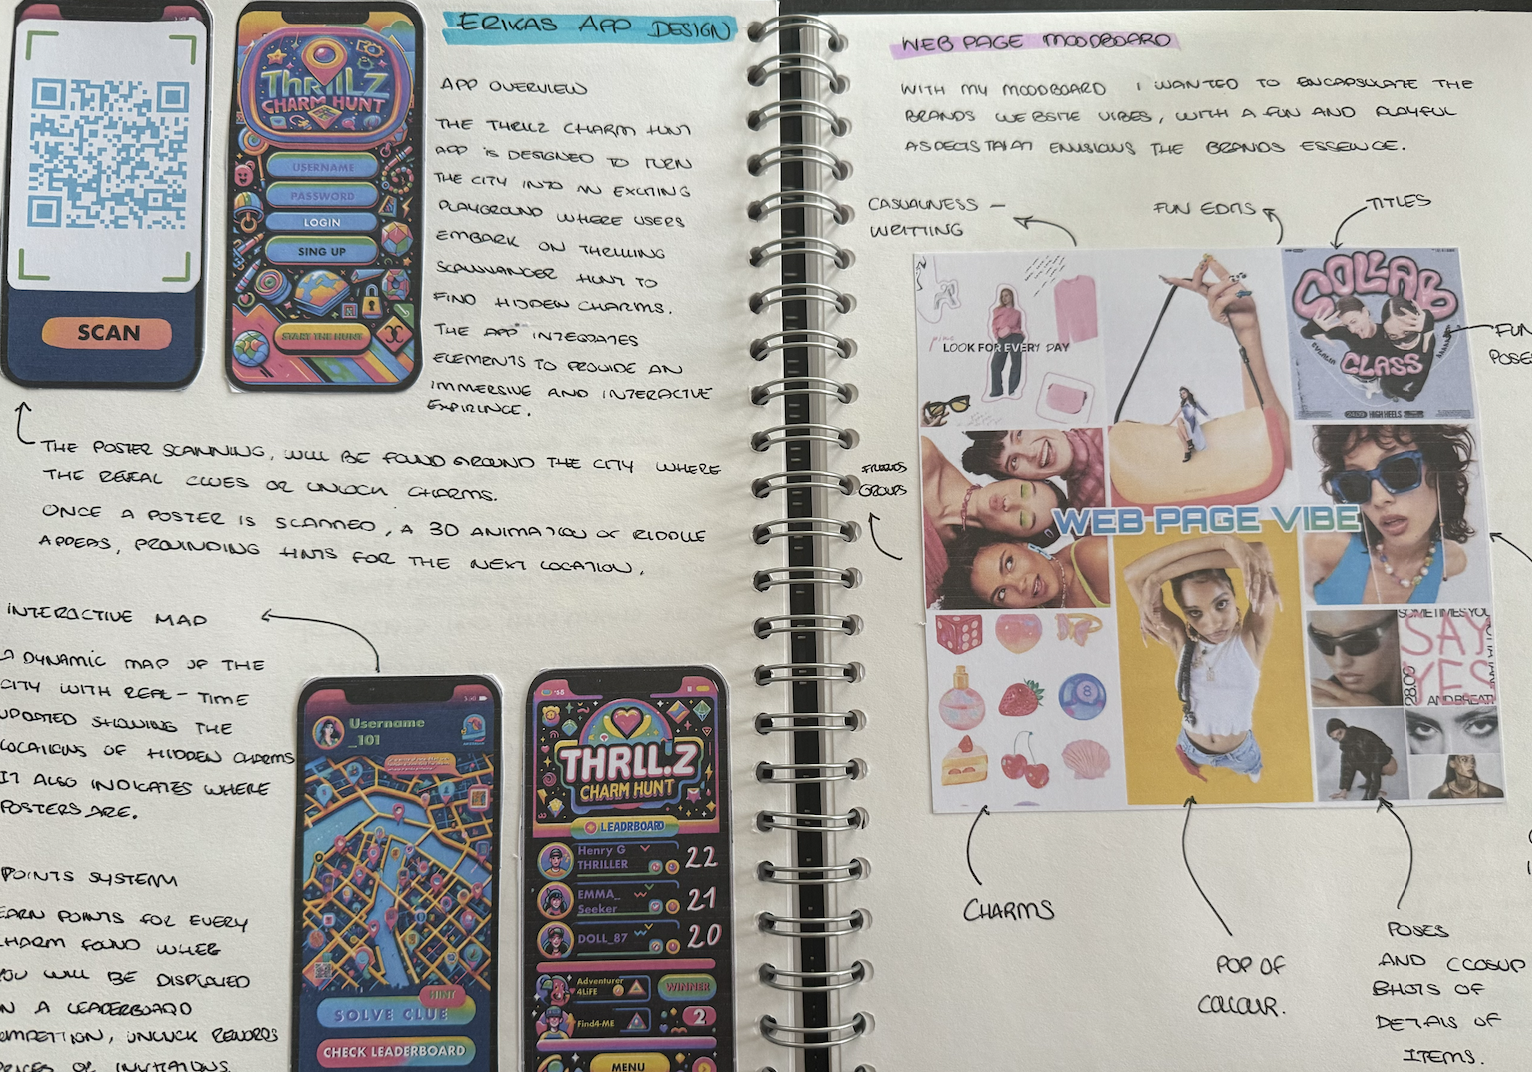 ERIKAS APP DESIGN
APP OVERVIEW
THE THRILLZ CHARM HUNT
APP IS DESIGNED TO TURN
THE CITY INTO AN EXCITING
PLAYGROUND WHERE USERS
EMBARK ON THRILLING
SCANVANGER HUNT TO
FIND HIDDEN CHARMS.
THE APP INTEGRATES
ELEMENTS TO PROVIDE AN
IMMERSIVE AND INTERACTIVE
EXPIRINCE.
SCAN
THRILLZ
CHARM HUNT
USERNAME
PASSWORD
LOGIN
SING UP
START THE HUNT
THE POSTER SCANNING, WILL BE FOUND AROUND THE CITY WHERE
THE REVEAL CLUES OR UNLOCK CHARMS.
ONCE A POSTER IS SCANNED, A 3D ANIMATION OF RIDDLE
APPEAS, PROVINDING HINTS FOR THE NEXT LOCATION.
INTERACTIVE MAP
A DYNAMIC MAP OF THE
CITY WITH REAL-TIME
UPDATED SHOWING THE
LOCATIONS OF HIDDEN CHARMS
IT ALSO INDICATES WHERE
POSTERS ARE.
POINTS SYSTEM
EARN POINTS FOR EVERY
CHARM FOUND WHER
YOU WILL BE DISPLAYED
N A LEADERBOARD
OMPETITION, UNLOCK REWARDS
PRICES OR INVITATIONS.
Username
_101
HINT
SOLVE CLUE
CHECK LEADERBOARD
THRLL.Z
CHARM HUNT
LEADRBOARD
Henry G
THRILLER
22
EMMA_
Seeker
21
DOLL_87
20
Adventurer
4LiFE
WINNER
Find4-ME
2
MENU
WEB PAGE MOODBOARD
WITH MY MOODBOARD I WANTED TO ENCAPSULATE THE
BRANDS WEBSITE VIBES, WITH A FUN AND PLAYFUL
ASPECTS THAT ENVISIONS THE BRANDS ESSENCE.
CASUALNESS -
WRITTING
FUN EDITS
TITLES
FUN
POSES
FRIENDS
GROUPS
pink
LOOK FOR EVERY DAY
COLLAB
CLASS
HIGH HEELS
WEB PAGE VIBE
8
SOMETIMES YOU
SAY
YES
28.00
AND BREATH
CHARMS
POP OF
COLOUR.
POSES
AND CCOSUP
SHOTS OF
DETAILS OF
ITEMS.